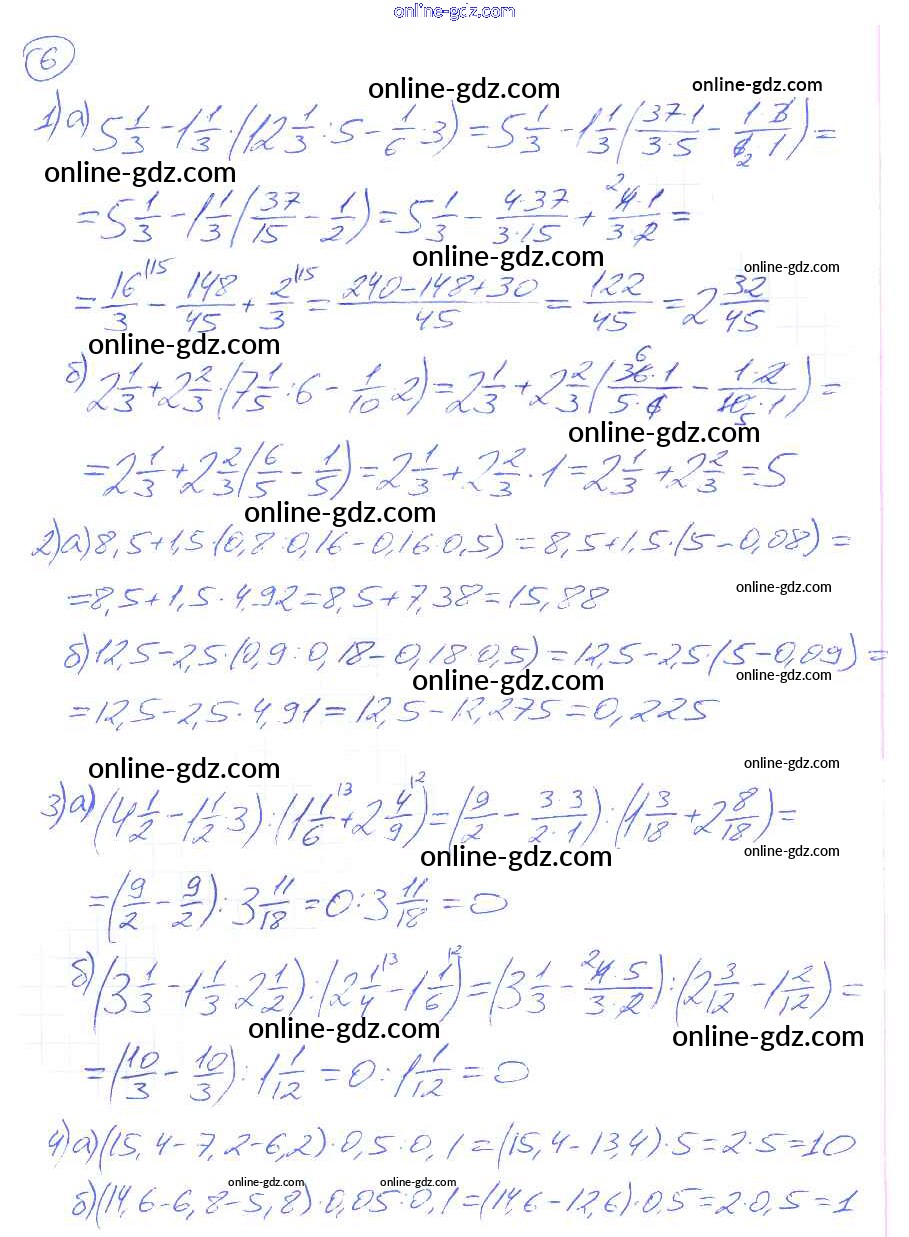 online-gdz.com
6
online-gdz.com online-gdz.com
1) а) 5 1/3 - 1 1/3 · (12 1/3 : 5 - 1/6 · 3) = 5 1/3 - 1 1/3 (37·1/3·5 - 1·3/6·1) =
2
online-gdz.com
= 5 1/3 - 1 1/3 (37/15 - 1/2) = 5 1/3 - 4·37/3·15 + 4·1/3·2 =
2
online-gdz.com online-gdz.com
= 16/3 - 148/45 + 2/3 = 240-148+30/45 = 122/45 = 2 32/45
15 15
online-gdz.com
б) 2 1/3 + 2 2/3 · (7 1/5 : 6 - 1/10 · 2) = 2 1/3 + 2 2/3 (36·1/5·6 - 1·2/10·1) =
6 5
online-gdz.com
= 2 1/3 + 2 2/3 (6/5 - 1/5) = 2 1/3 + 2 2/3 · 1 = 2 1/3 + 2 2/3 = 5
online-gdz.com
2) а) 8,5+1,5·(0,8:0,16-0,16·0,5) = 8,5+1,5·(5-0,08) =
online-gdz.com
= 8,5+1,5·4,92=8,5+7,38=15,88
б) 12,5-2,5·(0,9:0,18-0,18·0,5) = 12,5-2,5·(5-0,09) =
online-gdz.com online-gdz.com
= 12,5-2,5·4,91 = 12,5-12,275 = 0,225
online-gdz.com online-gdz.com
3) а) (4 1/2 - 1 1/2 · 3) : (1 1/6 + 2 4/9) = (9/2 - 3·3/2·1) : (1 3/18 + 2 8/18) =
3 2
online-gdz.com online-gdz.com
= (9/2 - 9/2) : 3 11/18 = 0 : 3 11/18 = 0
б) (3 1/3 - 1 1/3 · 2 1/2) : (2 1/4 - 1 1/6) = (3 1/3 - 4·5/3·2) : (2 3/12 - 1 2/12) =
3 2 2
online-gdz.com online-gdz.com
= (10/3 - 10/3) : 1 1/12 = 0 : 1 1/12 = 0
4) а) (15,4-7,2-6,2)·0,5:0,1=(15,4-13,4)·5=2·5=10
online-gdz.com online-gdz.com
б) (14,6-6,8-5,8)·0,05:0,1=(14,6-12,6)·0,5=2·0,5=1